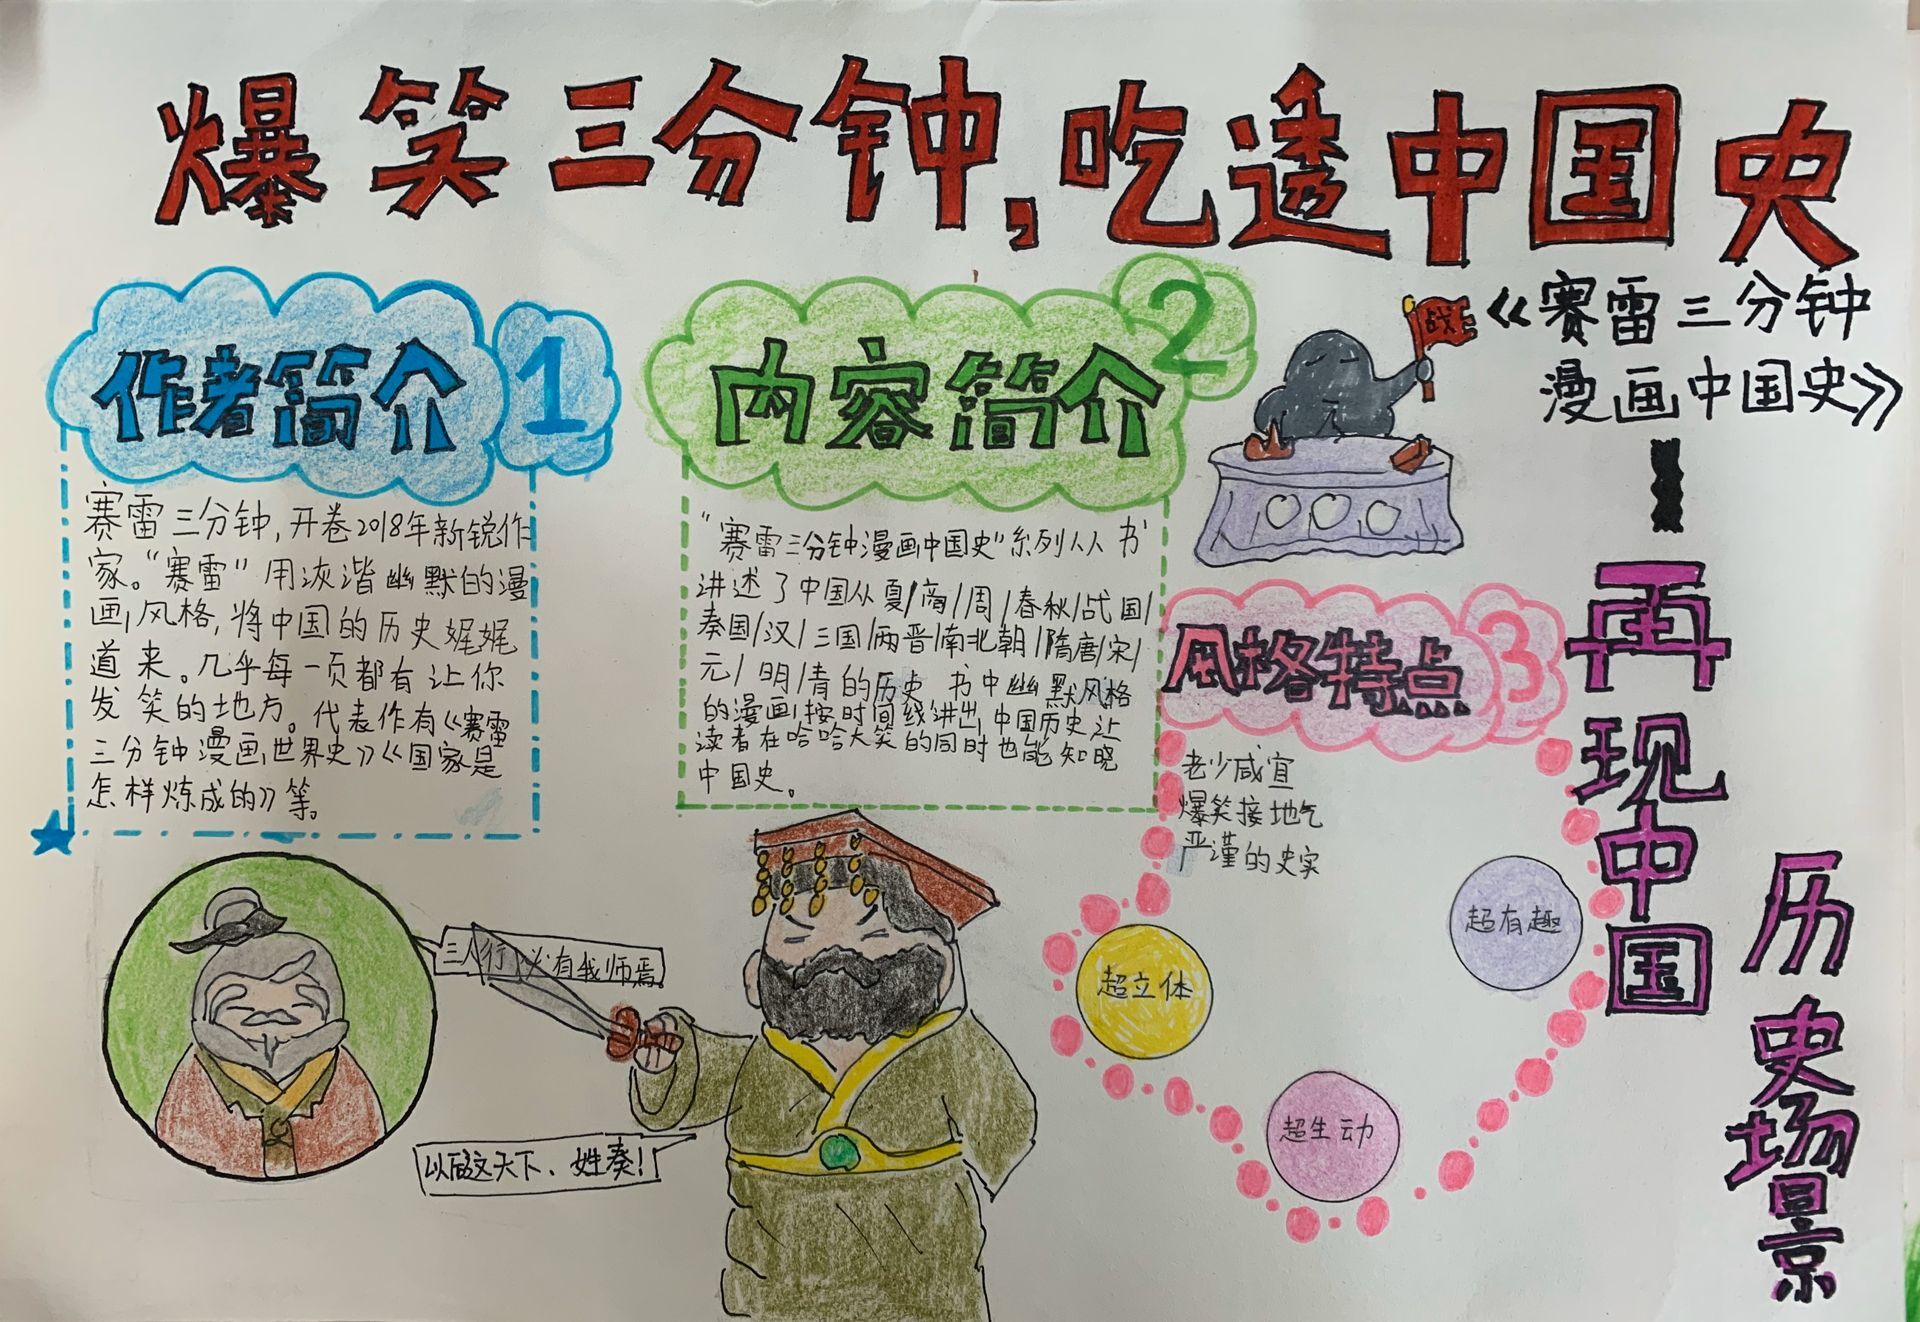 爆笑三分钟,吃透中国史
《赛雷三分钟
漫画中国史》
—再现中国
历史场景
作者简介 1
赛雷三分钟,开卷2018年新锐作
家。“赛雷”用诙谐幽默的漫
画风格,将中国的历史娓娓
道来。几乎每一页都有让你
发笑的地方。代表作有《赛雷
三分钟漫画世界史》《国家是
怎样炼成的》等。
内容简介 2
“赛雷三分钟漫画中国史”系列从书
讲述了中国从夏/商/周/春秋/战国/
秦国/汉/三国/两晋/南北朝/隋唐/宋/
元/明/青的历史 书中幽默风格
的漫画,按时间线讲出中国历史让
读者在哈哈大笑的同时也能知晓
中国史。
战
风格特点 3
老少咸宜
爆笑接地气
严谨的史实
超有趣
超立体
超生动
三人行必有我师焉
以后这天下、姓秦!